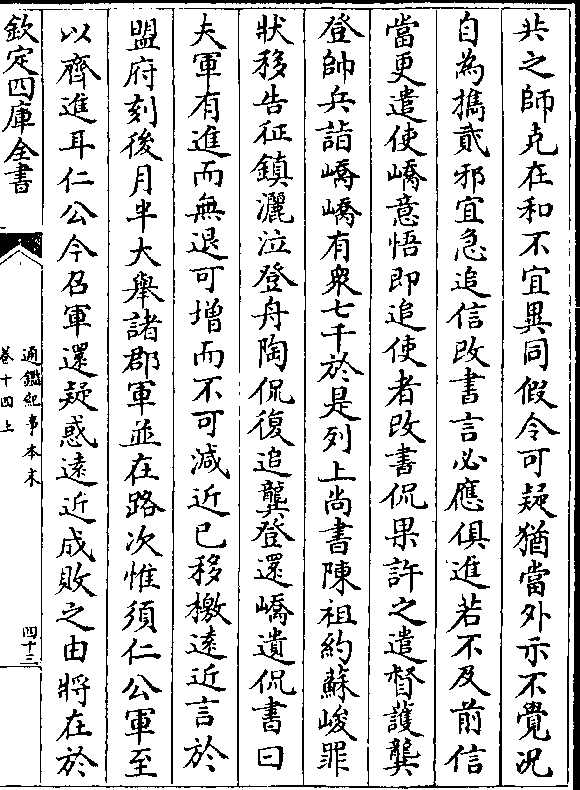 共之師克在和不宜異同假令可疑猶當外示不覺況
自為攜貳邪宜急追信改書言必應俱進若不及前信
當更遣使嶠意悟即追使者改書侃果許之遣督護龔
登帥兵詣嶠嶠有衆七千於是列上尚書陳祖約蘇峻罪
狀移告征鎮灑泣登舟陶侃復追龔登還嶠遺侃書曰
夫軍有進而無退可增而不可減近已移檄遠近言於
盟府刻後月半大舉諸郡軍並在路次惟須仁公軍至
以齊進耳仁公今召軍還疑惑遠近成敗之由將在於
欽定四庫全書
通鑑紀事本末
卷十四上
四十三